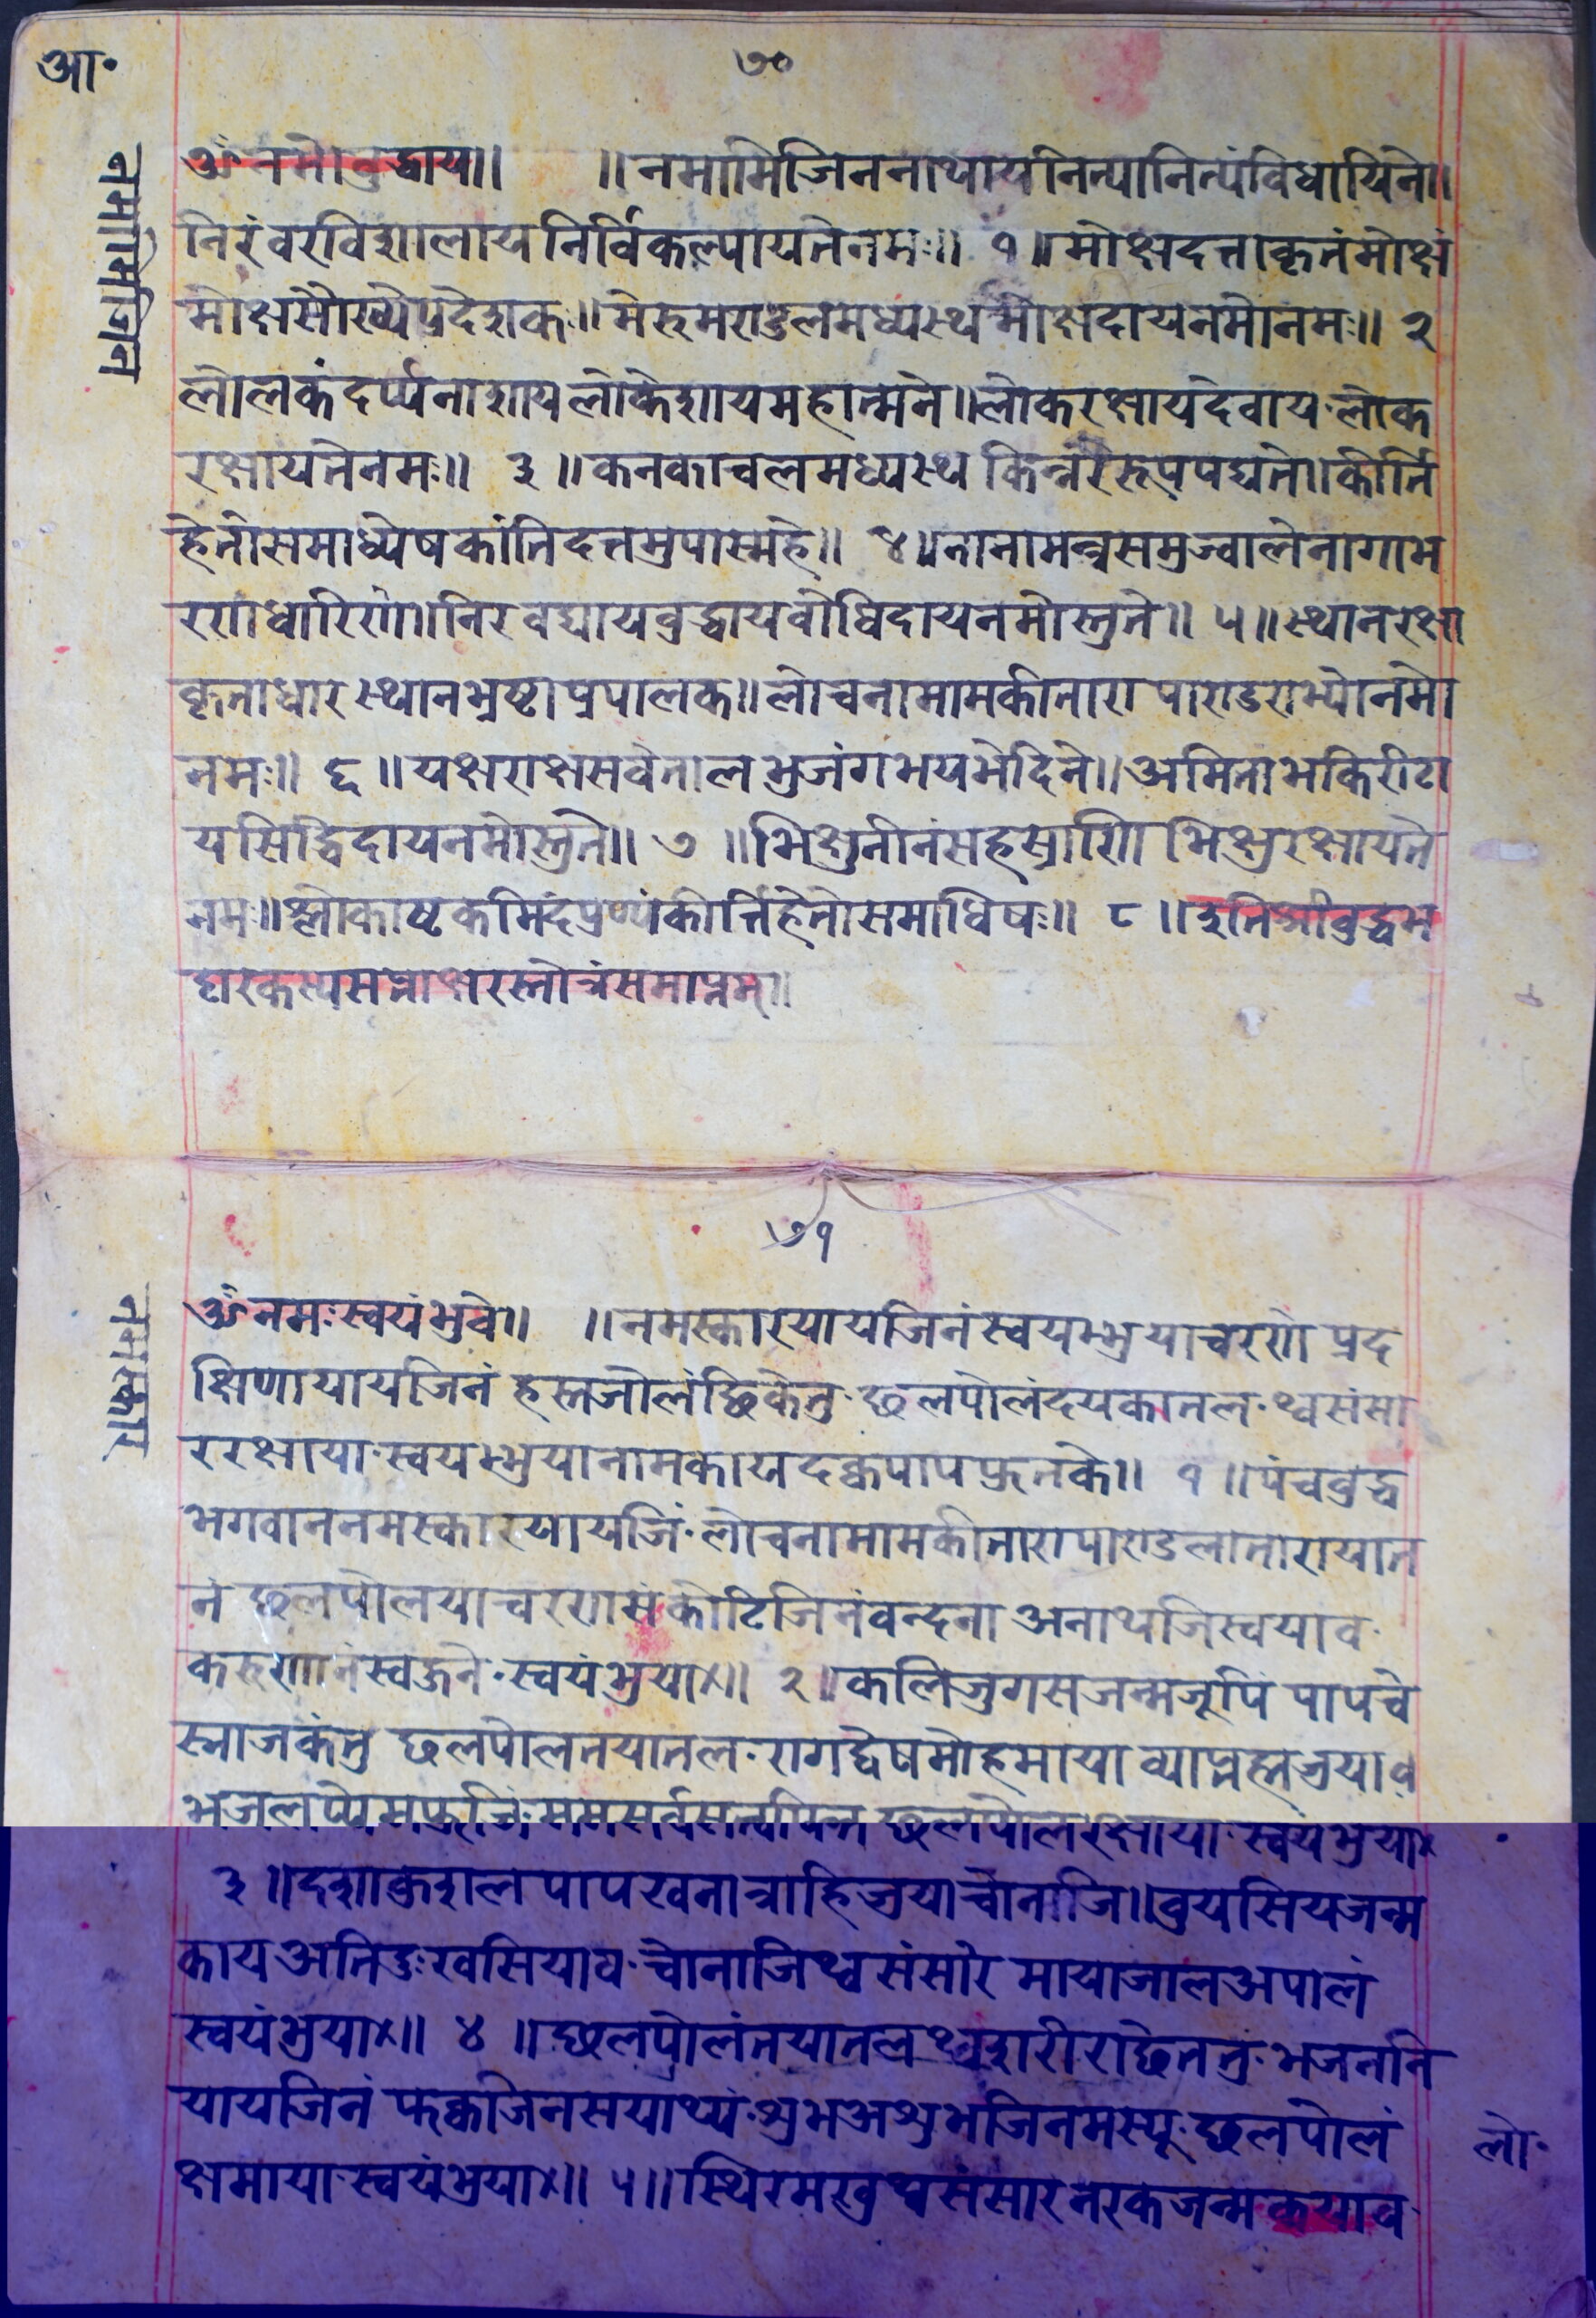 आ॰
७०
नमामिजिन
ॐनमोबुद्धाय॥ ॥नमामिजिननाथायनित्यानित्यंविधायिने॥
निरंवरविशालायनिर्विकल्पायतेनमः॥ १॥मोक्षदत्ताकृतंमोक्षं
मोक्षसौख्यंप्रदेशकः॥मेरुमराडुलमध्यस्थंमोक्षदायनमोनमः॥ २
लोलकंदर्प्पनाशायलोकेशायमहात्मने॥लोकरक्षायदेवाय लोक
रक्षायतेनमः॥ ३॥कनकाचलमध्यस्थ किन्नरैरुपपद्यते॥कीर्ति
हेतोसमाध्येषकांतिदत्तमुपास्महे॥ ४॥नानामन्त्रसमुज्वालेनागाभ
रणंधारिणं॥निरवद्यायबुद्धायबोधिदायनमोस्तुते॥ ५॥स्थानरक्षा
कृताधारस्थानभ्रष्टाप्रपालक॥लोचनामामकीतारा पाराडराभ्योनमो
नमः॥ ६॥यक्षराक्षसवेतालभुजंगभयभेदिने॥अमिताभकिरीटा
यसिद्धिदायनमोस्तुते॥ ७॥भिक्षुनीनंसहस्राणि भिक्षुरक्षायते
नमः॥श्लोकाष्टकमिदंप्रण्यंकीर्त्तिहेतोसमाधिषः॥ ८॥इतिश्रीबुद्धभ
ट्टारकस्यसप्ताक्षरस्तोत्रंसमाप्तम्॥
७१
नमस्कार
ॐनमःस्वयंभुवे॥ ॥नमस्कारयायजिनंस्वयम्भुयाचरणे प्रद
क्षिणायायजिनं हस्तजोलंछिकेतु छलपोलंदयकातल थ्वसंसा
ररक्षाया स्वयम्भुयानामकायदक्वपापफुतके॥ १॥पंचबुद्ध
भगवाननमस्कारयायजिं लोचनामामकीतारापाराडलातारायात
नं छलपोलयाचरणासंकोटिजिनंवन्दना अनाथजिस्वयाव
करुणानंस्वऊने स्वयंभुया×॥ २॥कलिजुगसजन्मजूपिं पापचे
स्ताजकंतु छलपोलनयातल रागद्वेषमोहमाया व्याप्तहलजुयाव
छलपोलरक्षाया स्वयंभुया×
३॥दशाकुशलपापखनात्राहिजुयाचोनाजि॥बुयसियजन्म
कायअतिदुःखसियाव चोनाजिथ्वसंसारे मायाजालअपालं
स्वयंभुया×॥ ४॥छलपोलंनयातल थ्वशरीराछेतनु भजनति
यायजिनं फक्वजिनसयाथ्यं शुभअशुभजिनमस्यू छलपोलं
क्षमाया स्वयंभुया×॥ ५॥स्थिरमखुथ्वसंसारनरकजन्मकयाव
लो॰